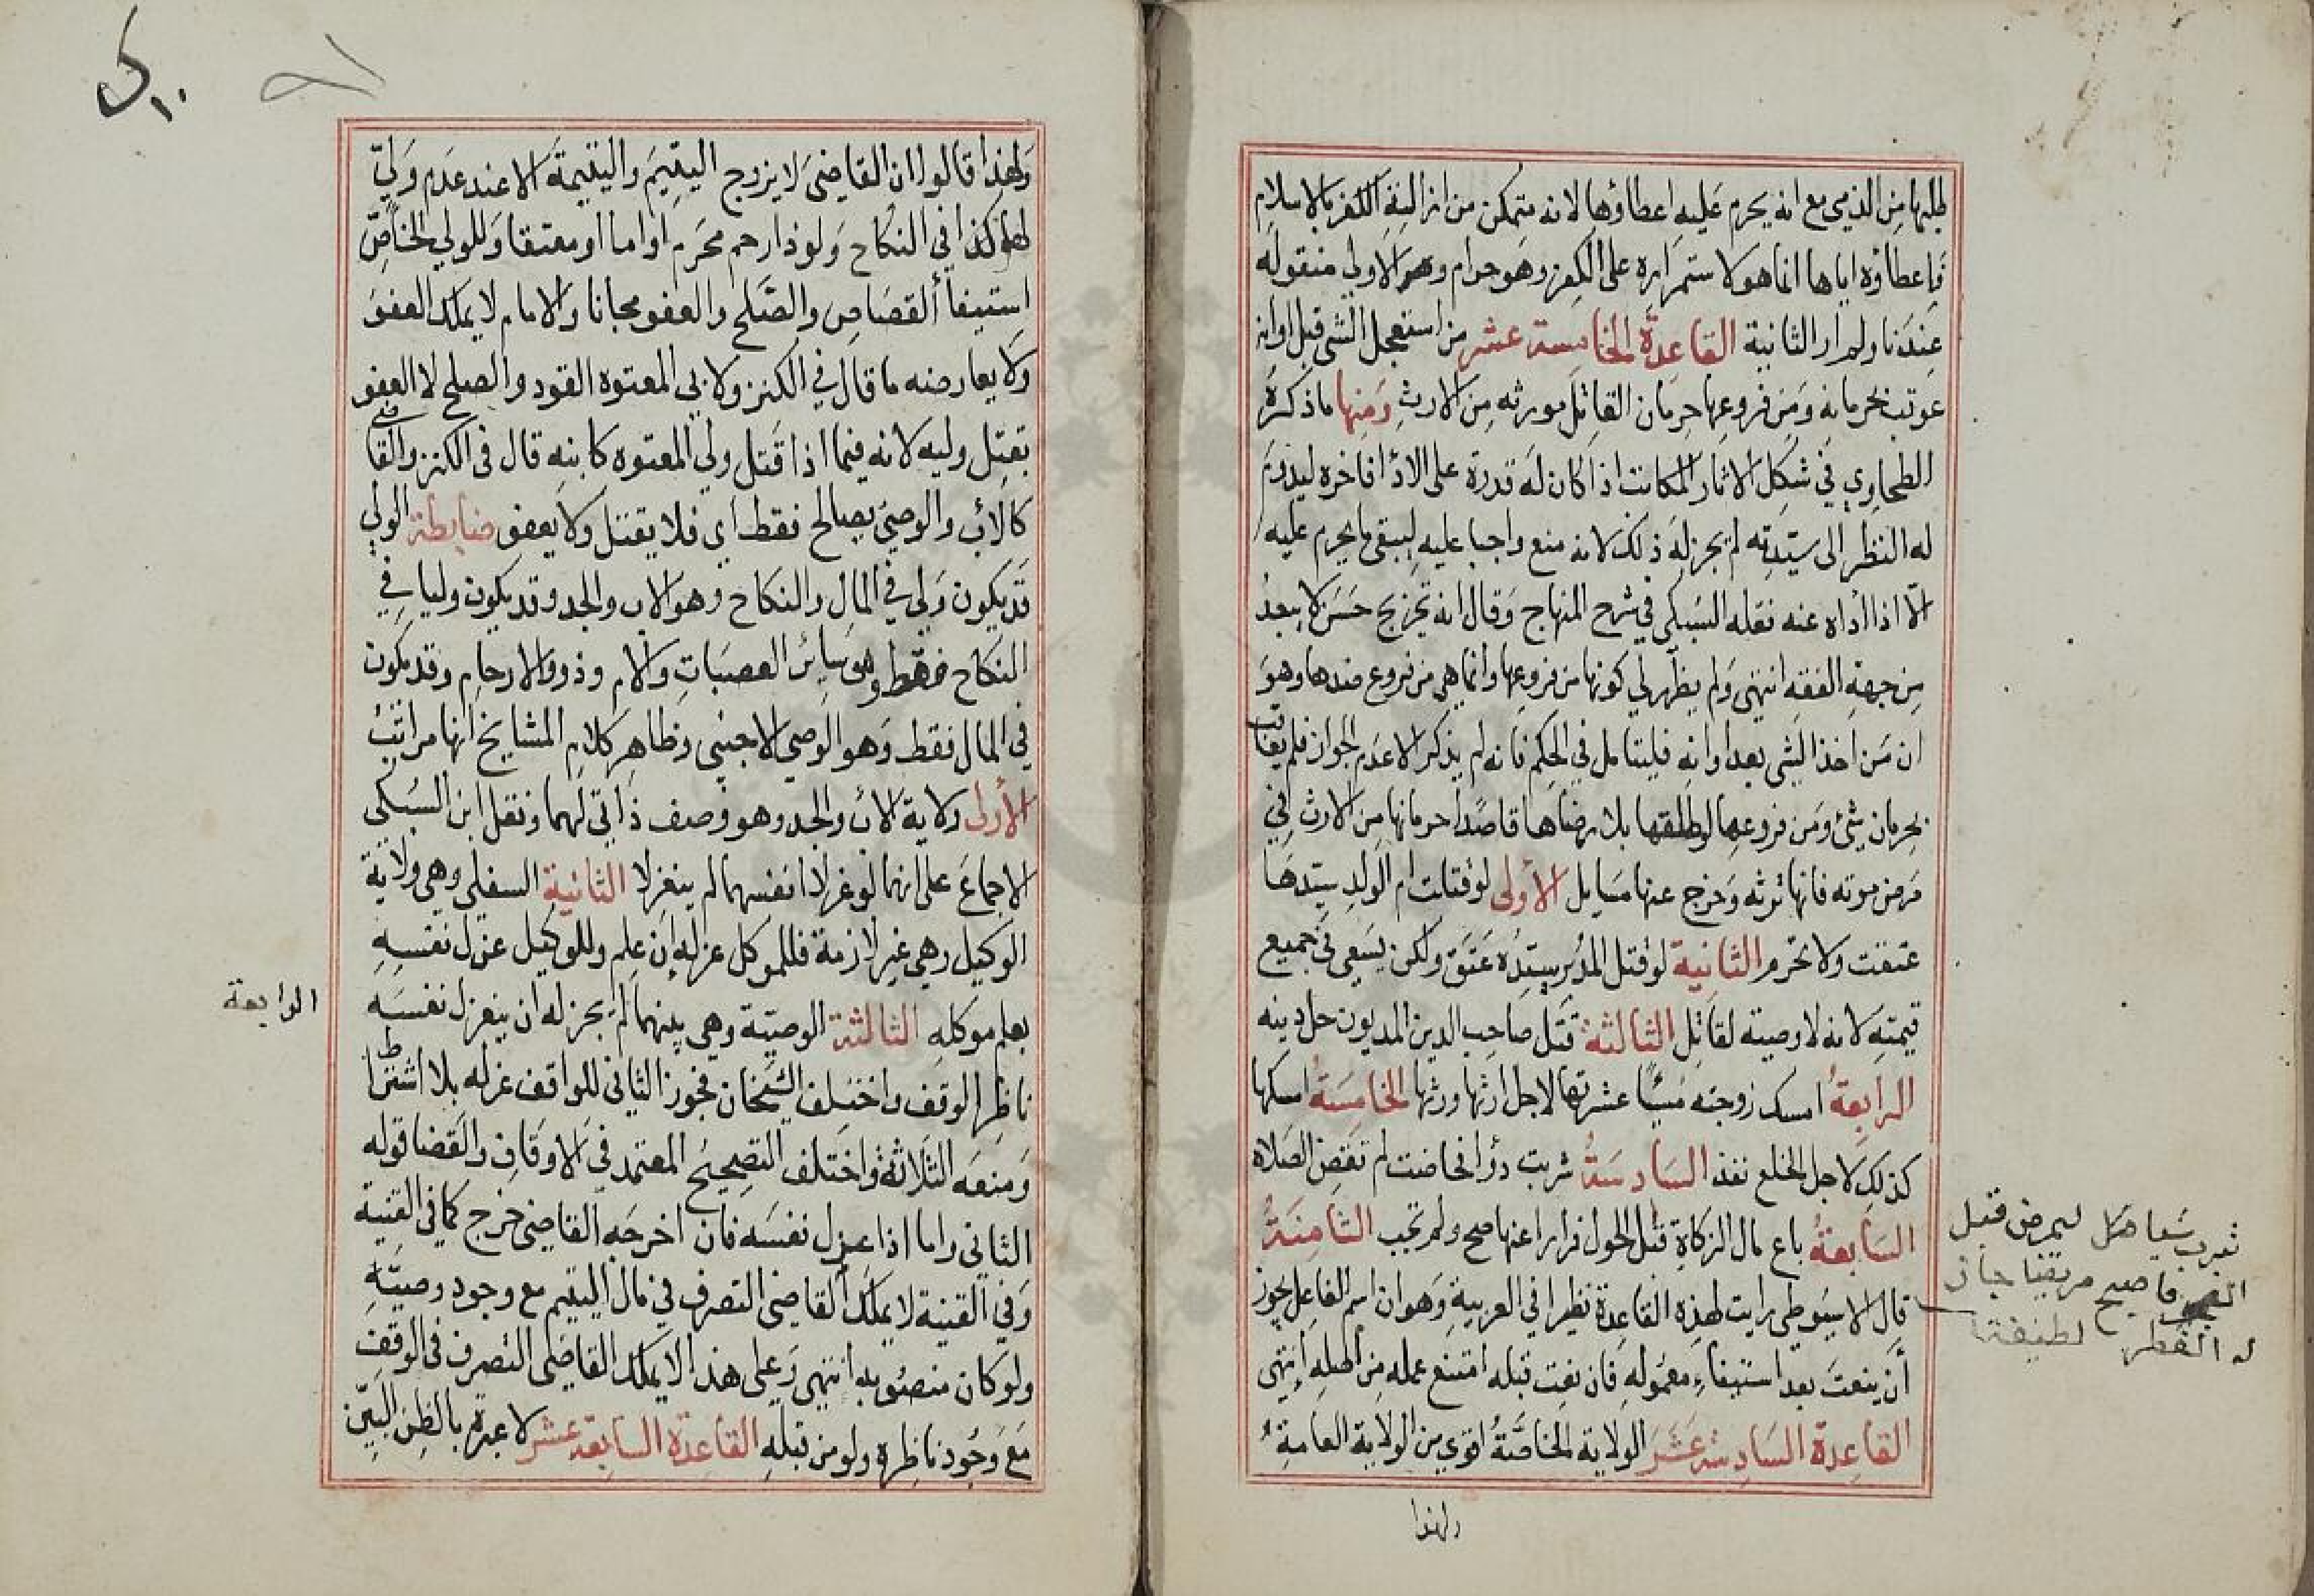 طلبها من الذمي مع انه يحرم عليه اعطاؤها لانه متمكن من ازالة الكفر بالاسلام
فاعطاؤه اياها انما هو لاستمراره على الكفر وهو حرام وهو الاولى منقولة
عندنا ولم ار الثانية القاعدة الخامسة عشر من استعجل الشي قبل اوانه
عوقب بحرمانه ومن فروعها حرمان القاتل مورثه من الارث ومنها ما ذكره
الطحاوي في شكل الاثار المكاتب اذا كان له قدرة على الادا فاخره ليدوم
له النظر الى سيدته لم يجز له ذلك لانه منع واجبا عليه ليبقى ما يحرم عليه
الا اذا أداه عنه نقله السبكي في شرح المنهاج وقال انه تخريج حسن لا يبعد
من جهة الفقه انتهى ولم يظهر لي كونها من فروعها وانما هي من فروع ضدها وهو
ان من اخذ الشي بعد اوانه فليتامل في الحكم فانه لم يذكر الا عدم الجواز فلم يعاقب
بحرمان شئ ومن فروعها لو طلقها بلا رضاها قاصدا حرمانها من الارث في
مرض موته فانها ترثه وخرج عنها مسايل الأولى لو قتلت ام الولد سيدها
عتقت ولا تحرم الثانية لو قتل المدبر سيده عتق ولكن يسعى في جميع
قيمته لانه لا وصية لقاتل الثالثة قتل صاحب الدين المديون حل دينه
الرابعة امسك زوجته مسيئا عشرتها لاجل ارثها ورثها الخامسة امسكها
كذلك لاجل الخلع نفذ السادسة شربت دوا فحاضت لم تقض الصلاه
السابعة باع مال الزكاة قبل الحول فرارا عنها صح ولم تجب الثامنة
قال الاسيوطي رايت لهذه القاعدة نظيرا في العربية وهو ان اسم الفاعل يجوز
أن ينعت بعد استيفاء معموله فان نعت قبله امتنع عمله من اصله انتهى
القاعدة السادسة عشر الولاية الخاصة اقوى من الولاية العامة
شرب شيا ليمرض قبل
الفجر فاصبح مريضا جاز
له الفطر لطيفة
ولهذا
ولهذا قالوا ان القاضي لا يزوج اليتيم واليتيمة الا عند عدم ولي
لهما كذا في النكاح ولو ذا رحم محرم او اما او معتقا وللولي الخاص
استيفأ القصاص والصلح والعفو مجانا والامام لا يملك العفو
ولا يعارضه ما قال في الكنز ولابي المعتوه القود والصلح لا العفو
بقتل وليه لانه فيما اذا قتل ولي المعتوه كابنه قال في الكنز والقاضي
كالاب والوصي يصالح فقط اي فلا يقتل ولا يعفو ضابطة الولي
قد يكون ولي في المال والنكاح وهو الاب والجد وقد يكون وليا في
النكاح فقط وهو سائر العصبات والام وذوو الارحام وقد يكون
في المال فقط وهو الوصي الاجنبي وظاهر كلام المشايخ انها مراتب
الأولى ولاية الاب والجد وهو وصف ذاتي لهما ونقل ابن السبكي
الاجماع على انهما لو عزلا انفسهما لم ينعزلا الثانية السفلى وهي ولاية
الوكيل وهي غير لازمة فللموكل عزله إن علم وللوكيل عزل نفسه
بعلم موكله الثالثة الوصية وهي بينهما لم يجز له ان يعزل نفسه
الرابعة
ناظر الوقف واختلف الشيخان فجوز الثاني للواقف عزله بلا اشتراط
ومنعه الثلاثة واختلف التصحيح المعتمد في الاوقاف والقضا قوله
الثاني واما اذا عزل نفسه فان اخرجه القاضي خرج كما في القنية
وفي القنية لا يملك القاضي التصرف في مال اليتيم مع وجود وصيه
ولو كان منصوبه انتهى وعلى هذا لا يملك القاضي التصرف في الوقف
مع وجود ناظره ولو من قبله القاعدة السابعة عشر لا عبرة بالظن البين